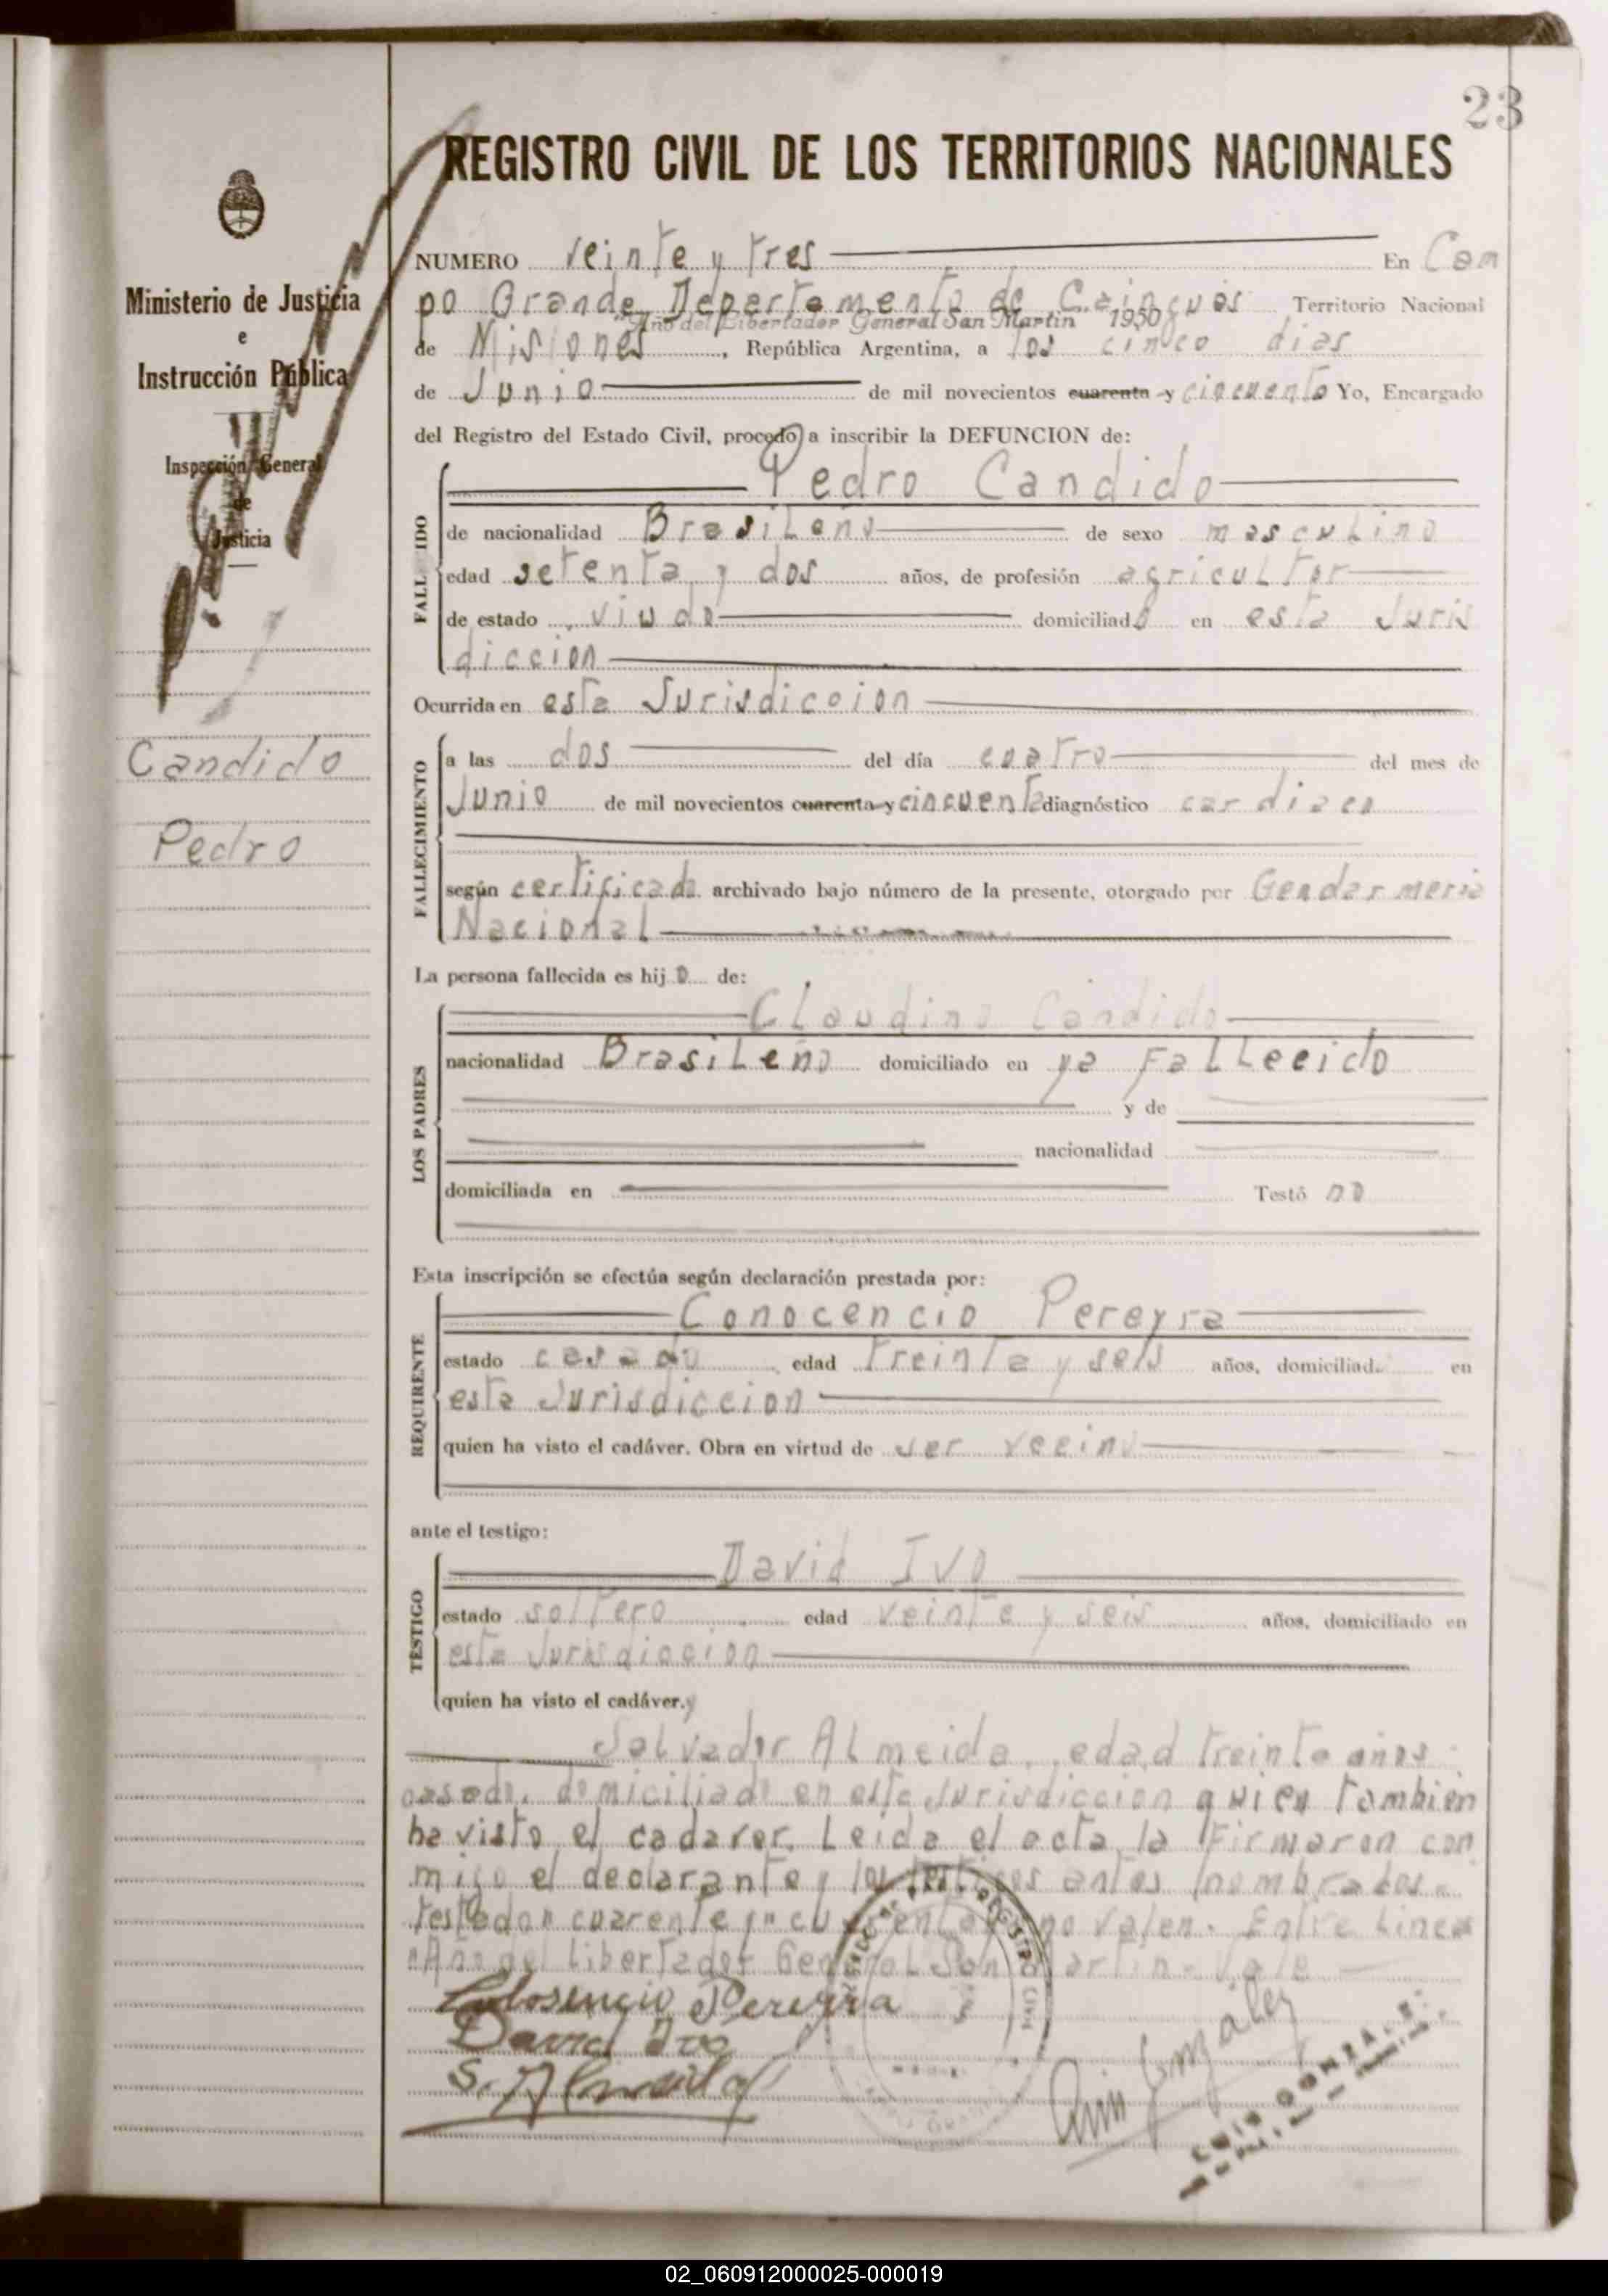 23
REGISTRO CIVIL DE LOS TERRITORIOS NACIONALES
Ministerio de Justicia
e
Instrucción Pública
Inspección General
de
Justicia
Candido
Pedro
NUMERO veinte y tres En Cam
po Grande Departamento de Cainguas Territorio Nacional
"Año del Libertador General San Martin" 1950
de Misiones, República Argentina, a los cinco dias
de Junio de mil novecientos cuarenta y cincuenta Yo, Encargado
del Registro del Estado Civil, procedo a inscribir la DEFUNCION de:
FALLECIDO
Pedro Candido
de nacionalidad Brasileño de sexo masculino
edad setenta y dos años, de profesión agricultor
de estado viudo domiciliado en esta Juris
diccion
Ocurrida en esta Jurisdiccion
FALLECIMIENTO
a las dos del día cuatro del mes de
Junio de mil novecientos cuarenta y cincuenta diagnóstico cardiaco
según certificado archivado bajo número de la presente, otorgado por Gendarmeria
Nacional
La persona fallecida es hijo de:
LOS PADRES
Claudino Candido
nacionalidad Brasileño domiciliado en ya Fallecido
y de
nacionalidad
domiciliada en Testó no
Esta inscripción se efectúa según declaración prestada por:
REQUIRENTE
Conocencio Pereyra
estado casado edad treinta y seis años, domiciliad en
esta Jurisdiccion
quien ha visto el cadáver. Obra en virtud de ser vecino
ante el testigo:
TESTIGO
David Ivo
estado soltero edad veinte y seis años, domiciliado en
esta Jurisdiccion
quien ha visto el cadáver. y
Salvador Almeida, edad treinta años
casado, domiciliado en esta Jurisdiccion quien tambien
ha visto el cadaver. Leida el acta la Firmaron con
migo el declarante y los testigos antes nombrados.
testado "cuarenta y" cuarenta no valen. Entre Linea
"Año del Libertador General San Martin" Vale
Pereyra
David Ivo
S. Almeida
Luis Gonzalez
LUIS GONZALEZ
02_060912000025-000019